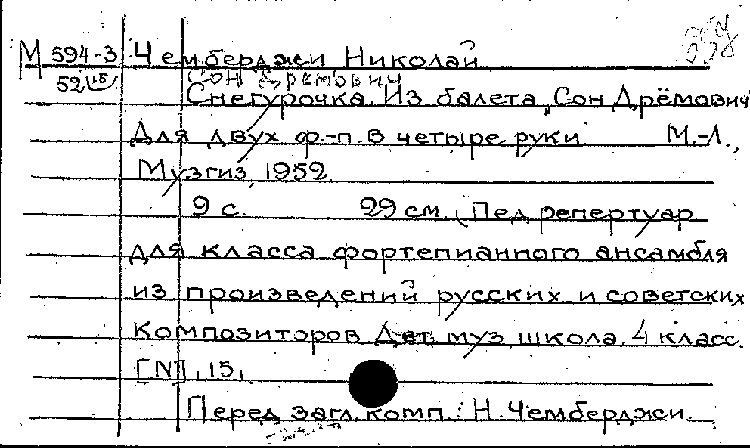 М 594-3
52/15
Чемберджи Николай
Сон Дрёмович
Снегурочка. Из балета „Сон Дрёмович"
Для двух ф.-п. в четыре руки. М.-Л.,
Музгиз, 1952.
9 с. 29 см. (Пед. репертуар
для класса фортепианного ансамбля
из произведений русских и советских
композиторов. Дет. муз. школа. 4 класс.
[N] 15)
Перед загл. комп.: Н. Чемберджи.